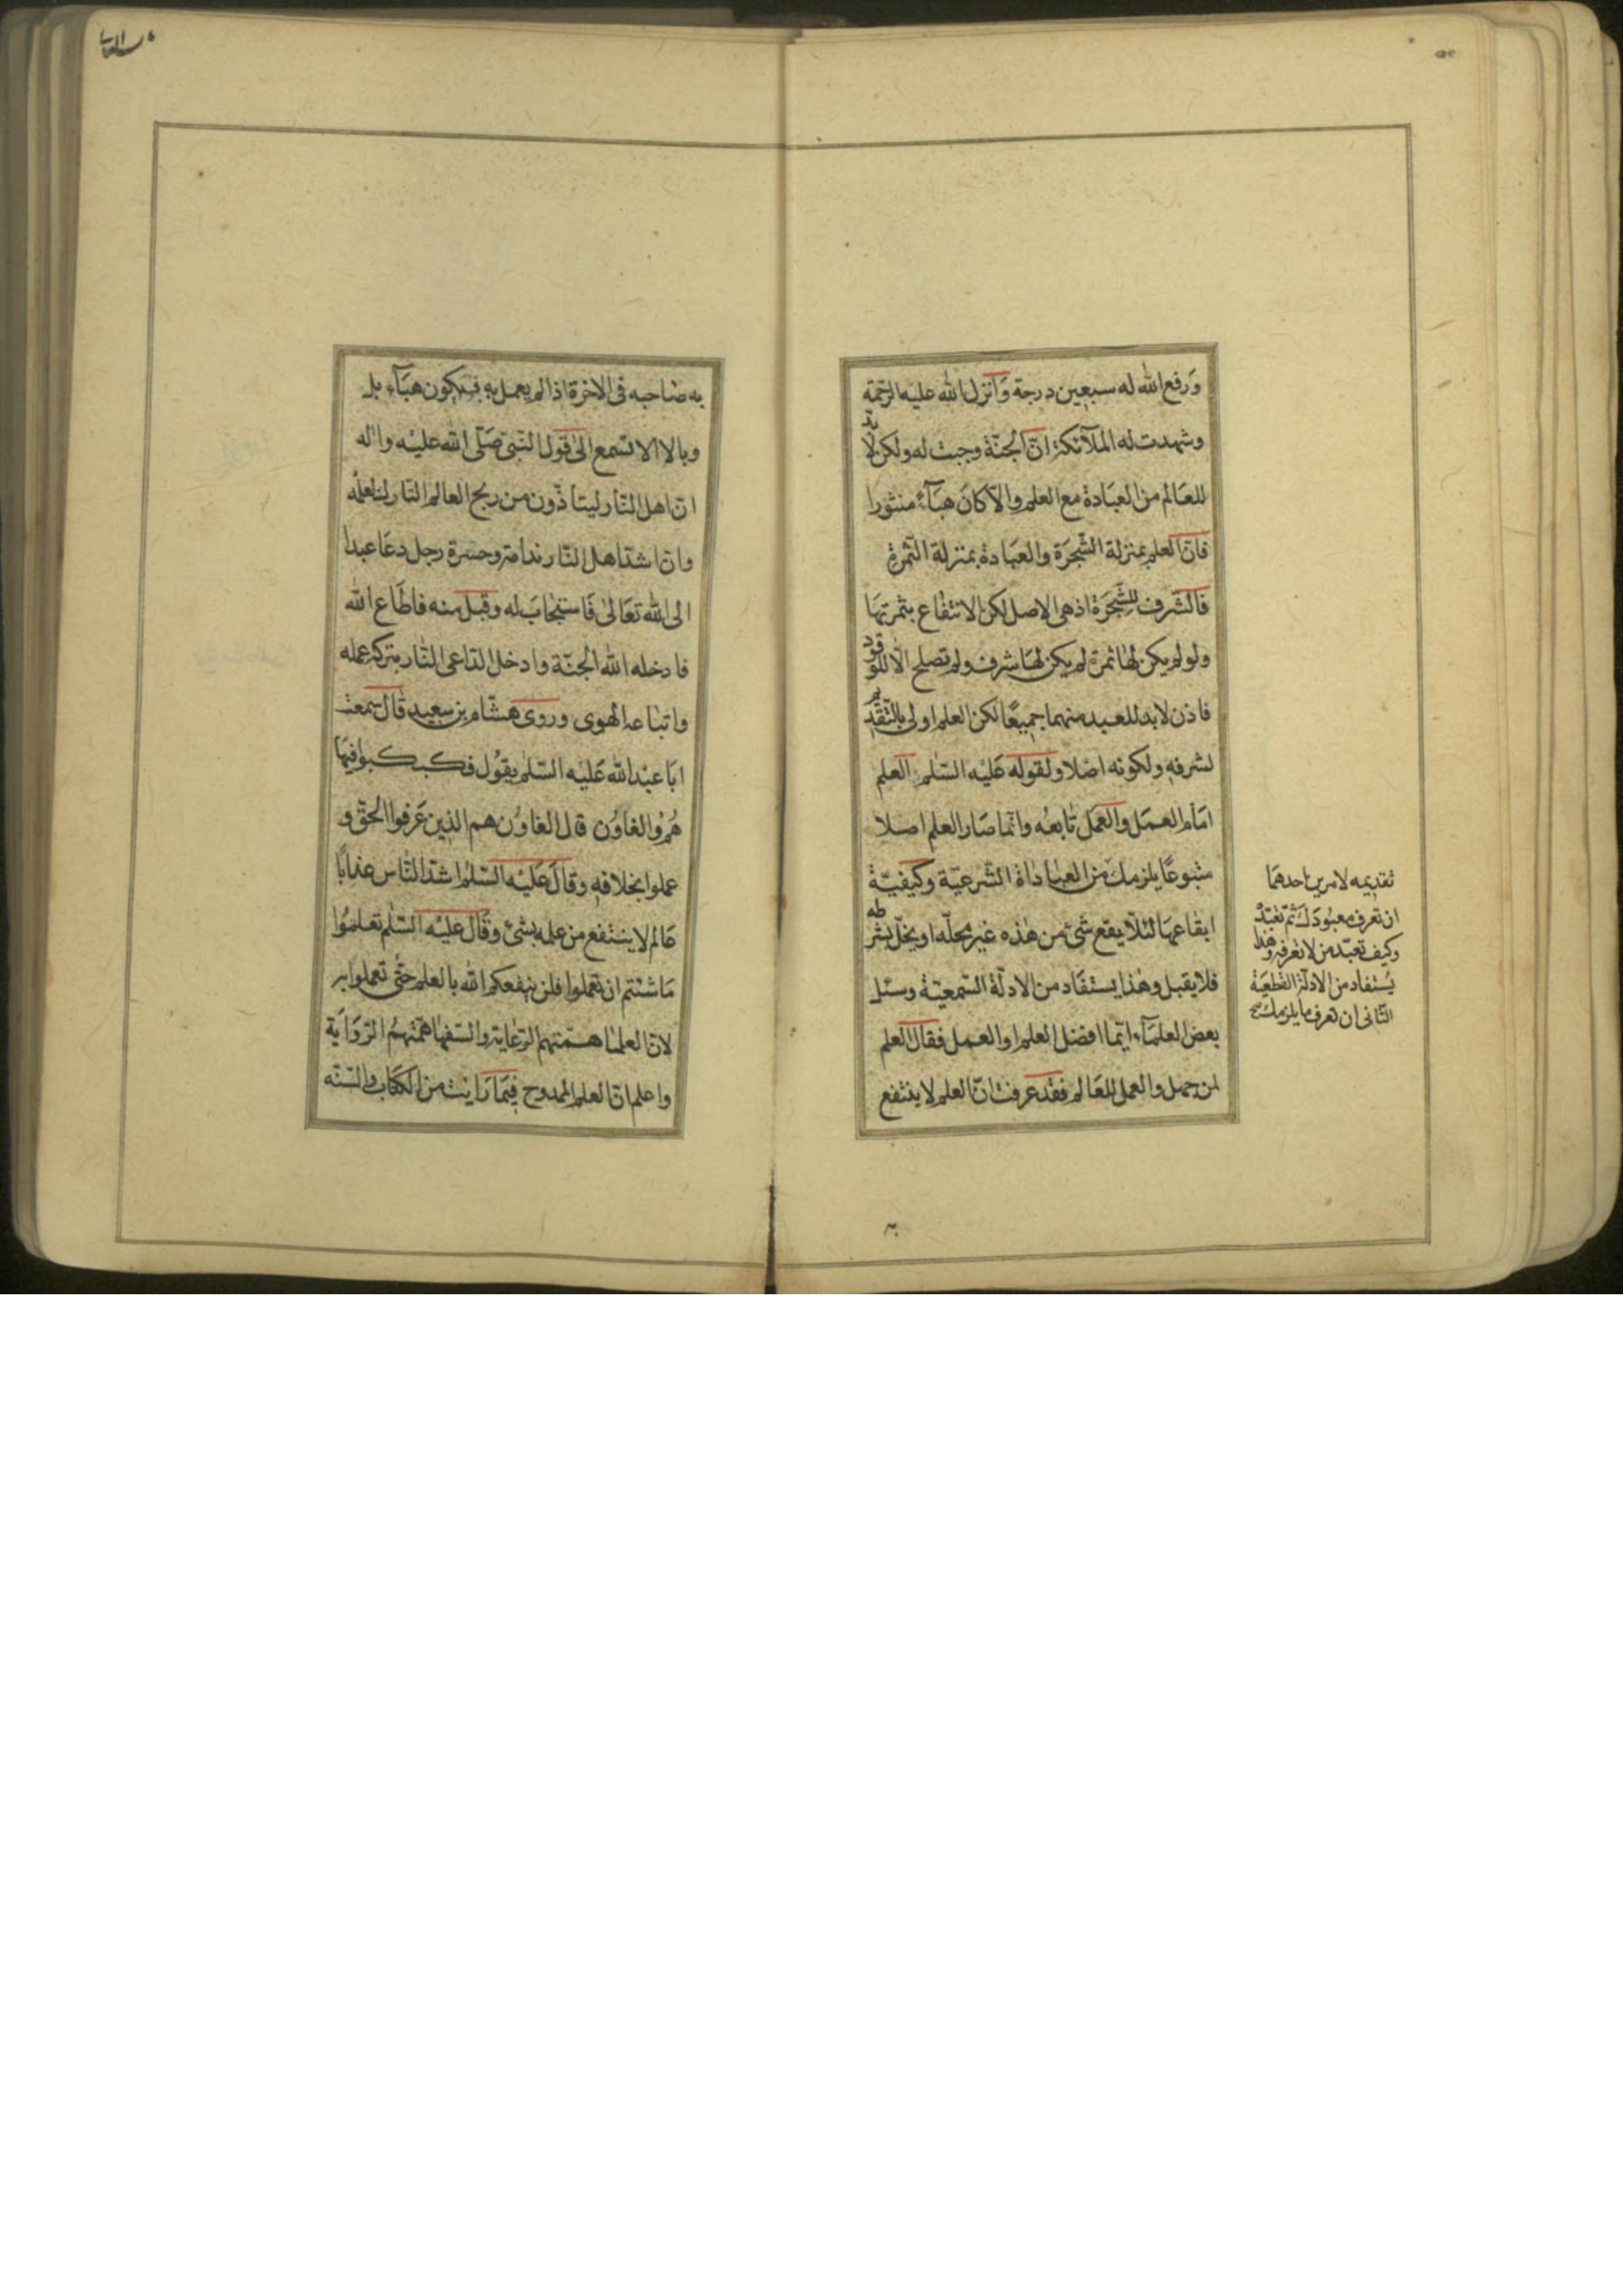 ورفع الله له سبعين درجة وانزل الله عليه الرحمة
وشهدت له الملآئكة ان الجنّة وجبت له ولكن لا بدّ
للعالم من العبادة مع العلم والّا كان هبآءً منثورا
فانّ العلم بمنزلة الشّجرة والعبادة بمنزلة الثّمرة
فالشّرف للشّجرة اذ هى الاصل لكن الانتفاع بثمرتها
ولو لم يكن لها ثمرة لم يكن لها شرف ولم تصلح الّا للوقود
فاذن لا بد للعبد منهما جميعًا لكن العلم اولى بالتّقديم
لشرفه ولكونه اصلا ولقوله عليه السّلم العلم
امام العمل والعمل تابعه وانّما صار العلم اصلا
متبوعًا يلزمك من العباداة الشّرعيّة وكيفيّة
ايقاعها لئلّا يقع شئ من هذه غير محلّه او يخلّ بشرطه
فلا يقبل وهذا يستفاد من الادلّة السّمعيّة وسئل
بعض العلمآء ايّما افضل العلم او العمل فقال العلم
لمن جهل والعمل للعالم فقد عرفت انّ العلم لا ينتفع
تقديمه لامرين احدهما
ان تعرف معبودك ثمّ تعبّد
وكيف تعبّد من لا تعرفه وهذا
يستفاد من الادلّة القطعيّة
الثّانى ان تعرف ما يلزمك صح
به صاحبه فى الاخرة اذا لم يعمل به فيكون هبآء بل
وبالا الا تسمع الى قول النّبىّ صلّى الله عليه واله
انّ اهل النّار ليتاذّون من ريح العالم التارك لعلمه
وانّ اشدّ اهل النّار ندامة وحسرة رجل دعا عبدا
الى الله تعالى فاستجاب له وقبل منه فاطاع الله
فادخله الله الجنّة وادخل الدّاعى النّار بتركه عمله
واتباعه الهوى وروى هشام بن سعيد قال سمعت
ابا عبد الله عليه السّلم يقول فكبكبوا فيها
هم والغاون قال الغاون هم الذين عرفوا الحقّ و
عملوا بخلافه وقال عليه السّلم اشدّ النّاس عذابًا
عالم لا ينتفع من علمه بشئ وقال عليه السّلم تعلموا
ما شئتم ان تعملوا فلن ينفعكم الله بالعلم حتّى تعملوا به
لانّ العلما همّتهم الرّعاية والسّفها همّتهم الرّواية
واعلم انّ العلم الممدوح فيما رايت من الكتاب والسّنّه